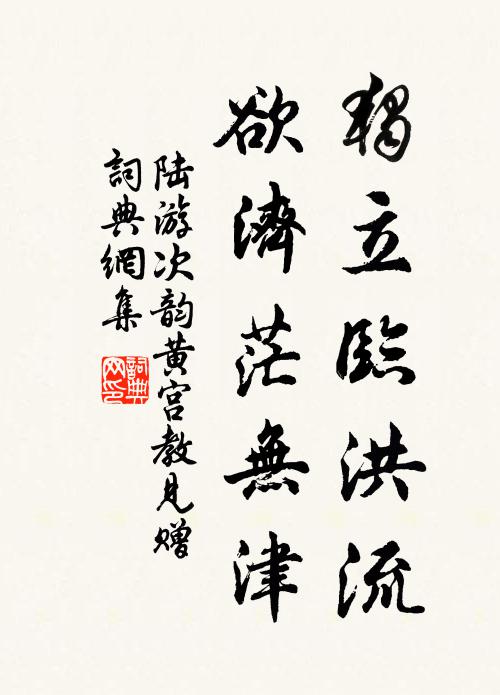 獨立臨洪流
欲濟茫無津
陆游次韵黄宫教見赠
詞典網集
詞典
网印